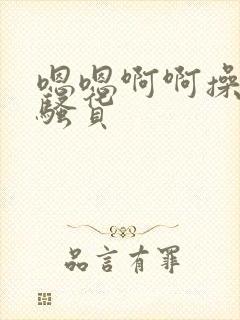 嗯嗯啊啊操
骚货
品言有罪